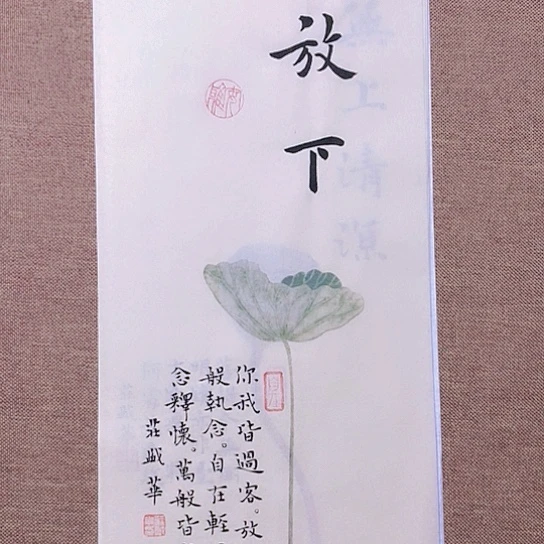 放下
你我皆過客。放
般執念。自在輕
念釋懷。萬般皆
莊
華